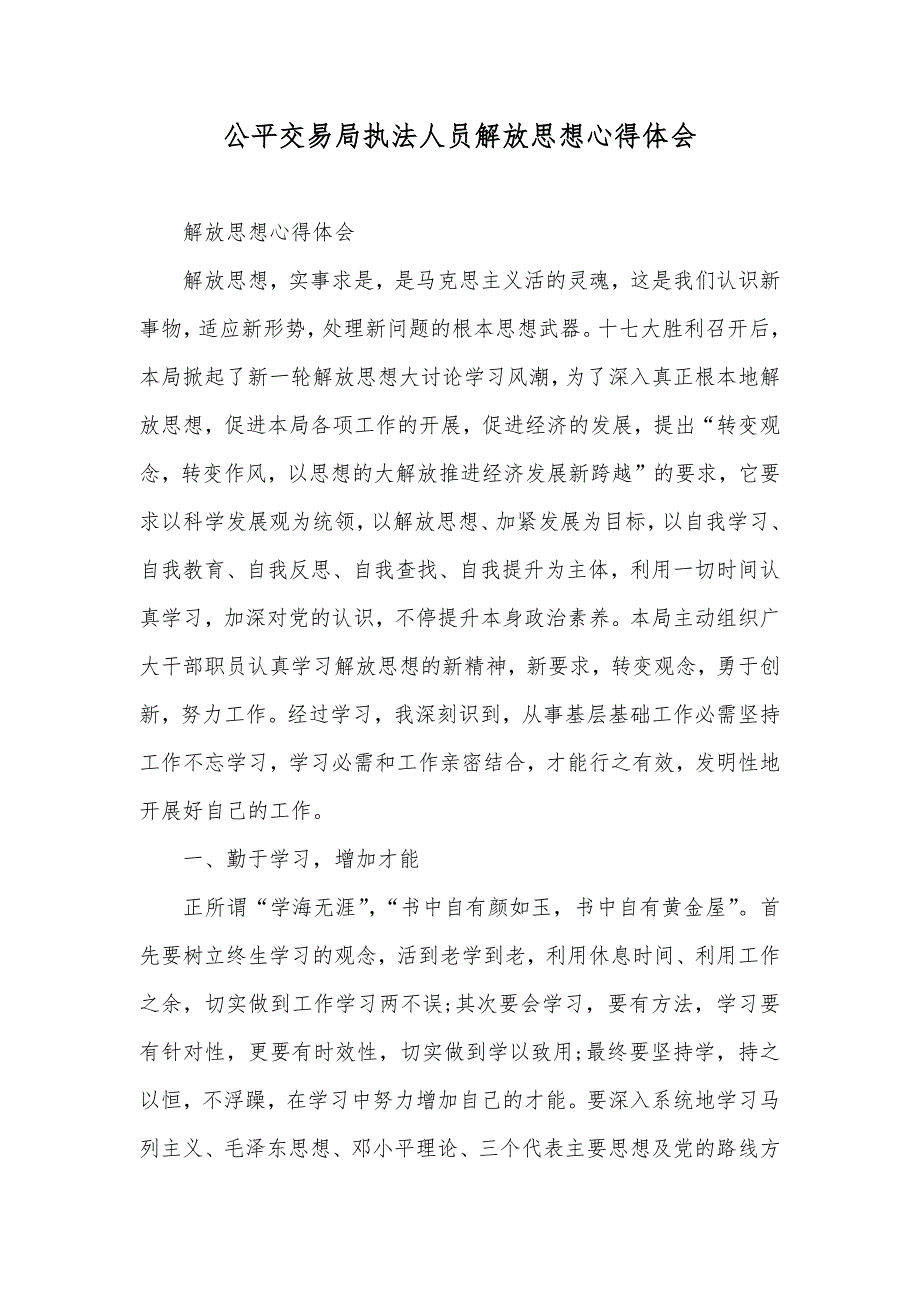 公平交易局执法人员解放思想心得体会
解放思想心得体会
解放思想，实事求是，是马克思主义活的灵魂，这是我们认识新
事物，适应新形势，处理新问题的根本思想武器。十七大胜利召开后，
本局掀起了新一轮解放思想大讨论学习风潮，为了深入真正根本地解
放思想，促进本局各项工作的开展，促进经济的发展，提出“转变观
念，转变作风，以思想的大解放推进经济发展新跨越”的要求，它要
求以科学发展观为统领，以解放思想、加紧发展为目标，以自我学习、
自我教育、自我反思、自我查找、自我提升为主体，利用一切时间认
真学习，加深对党的认识，不停提升本身政治素养。本局主动组织广
大干部职员认真学习解放思想的新精神，新要求，转变观念，勇于创
新，努力工作。经过学习，我深刻识到，从事基层基础工作必需坚持
工作不忘学习，学习必需和工作亲密结合，才能行之有效，发明性地
开展好自己的工作。
一、勤于学习，增加才能
正所谓“学海无涯”，“书中自有颜如玉，书中自有黄金屋”。首
先要树立终生学习的观念，活到老学到老，利用休息时间、利用工作
之余，切实做到工作学习两不误;其次要会学习，要有方法，学习要
有针对性，更要有时效性，切实做到学以致用;最终要坚持学，持之
以恒，不浮躁，在学习中努力增加自己的才能。要深入系统地学习马
列主义、毛泽东思想、邓小平理论、三个代表主要思想及党的路线方